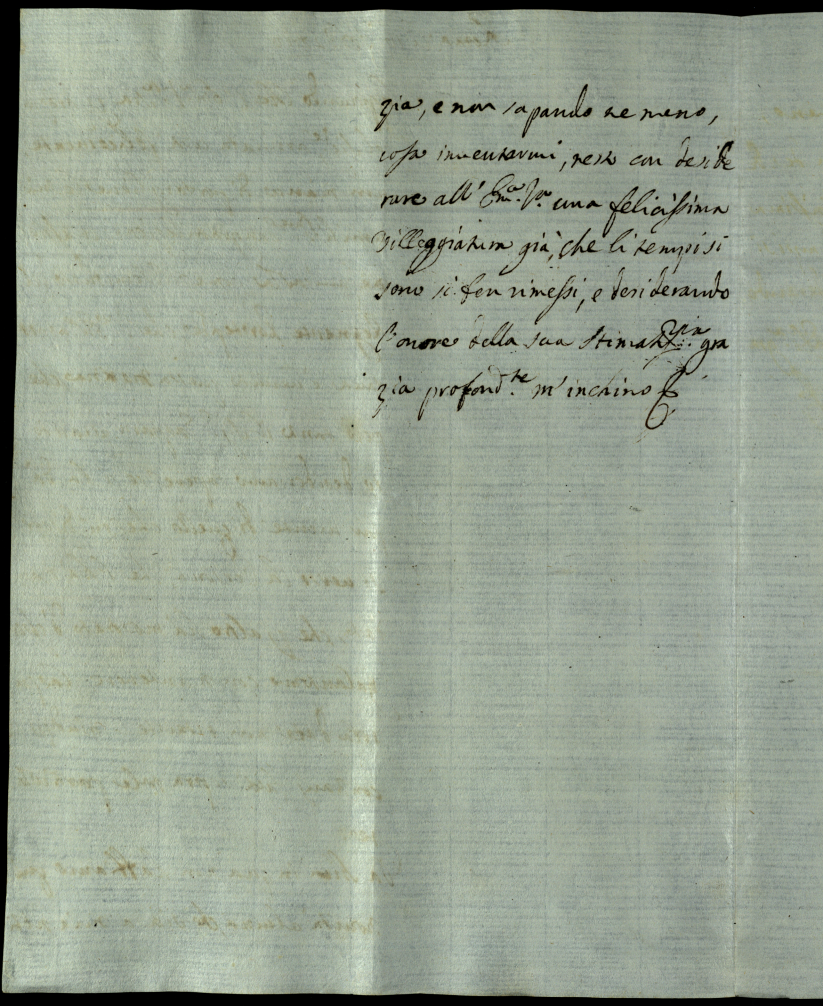 zia, e non sapando ne meno,
cosa inventarmi, resto con deside
rare all' Em.a V.a una felicissima
Villeggiatura già, che li tempi si
sono si ben rimessi, e desiderando
l'onore della sua stimatis.ma gra
zia profond.te m'inchino